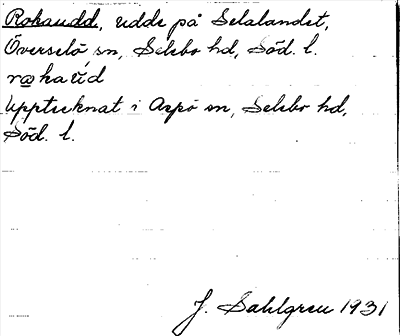 Rokaudd, udde på Selalandet,
Överselö sn, Selebo hd, Söd. l.
Upptecknat i Aspö sn, Selebo hd,
Söd. l.
J. Sahlgren 1931